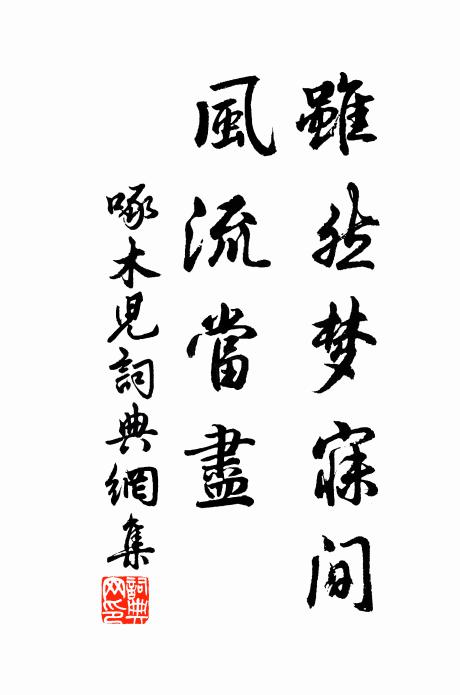 雖然梦寐间
風流當盡
啄木兒詞典網集
詞典网印